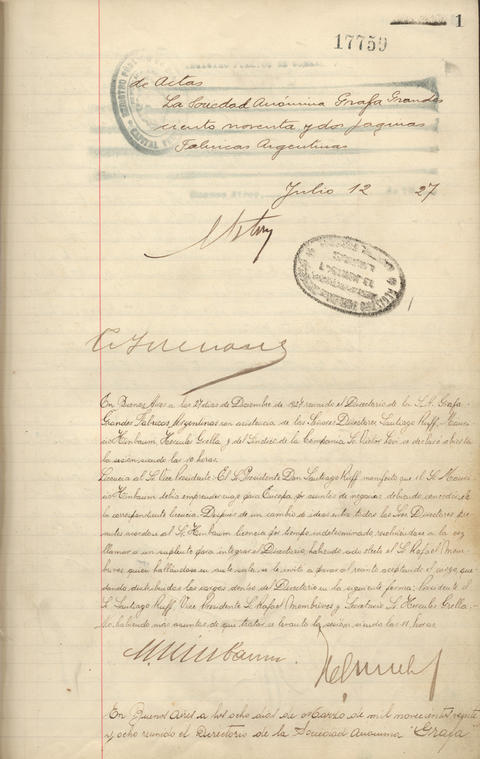 1
17759
de Actas
La Sociedad Anónima Grafa Grandes
ciento noventa y dos paginas
Fabricas Argentinas
Julio 12 27
En Buenos Aires a los 27 dias de Diciembre de 1927 reunido el Directorio de la S.A. Grafa
Grandes Fabricas Argentinas con asistencia de los Señores Directores Santiago Ruff, Mauri
cio Hirnbaum, Hercules Grella y del Sindico de la Compania Sr. Victor se declara abierta
la sesion siendo las 10 horas.
Licencia al Sr. Vice Presidente: El Sr. Presidente Don Santiago Ruff, manifestó que el Sr. Mauri
cio Hirnbaum debia emprender viaje para Europa por asuntos de negocios debiendo concederse
la correspondiente licencia. Después de un cambio de ideas entre todos los Sres Directores pre
sentes acordose al Sr. Hirnbaum licencia por tiempo indeterminado, resolviendose a la vez
llamar a un suplente para integrar el Directorio, habiendo sido electo el Sr. Rafael Mem
brives quien hallandose en ante sala se le invitó a pasar al recinto aceptando el cargo, que
dando distribuidos los cargos dentro del Directorio en la siguiente forma: Presidente el
Sr. Santiago Ruff, Vice Presidente Sr. Rafael Membrives y Secretario Sr. Hercules Grella.-
No habiendo mas asuntos de que tratar se levanto la sesion siendo las 11 horas
En Buenos Aires a los ocho dias de Marzo de mil novecientos veinte
y ocho reunido el Directorio de la Sociedad Anonima "Grafa"